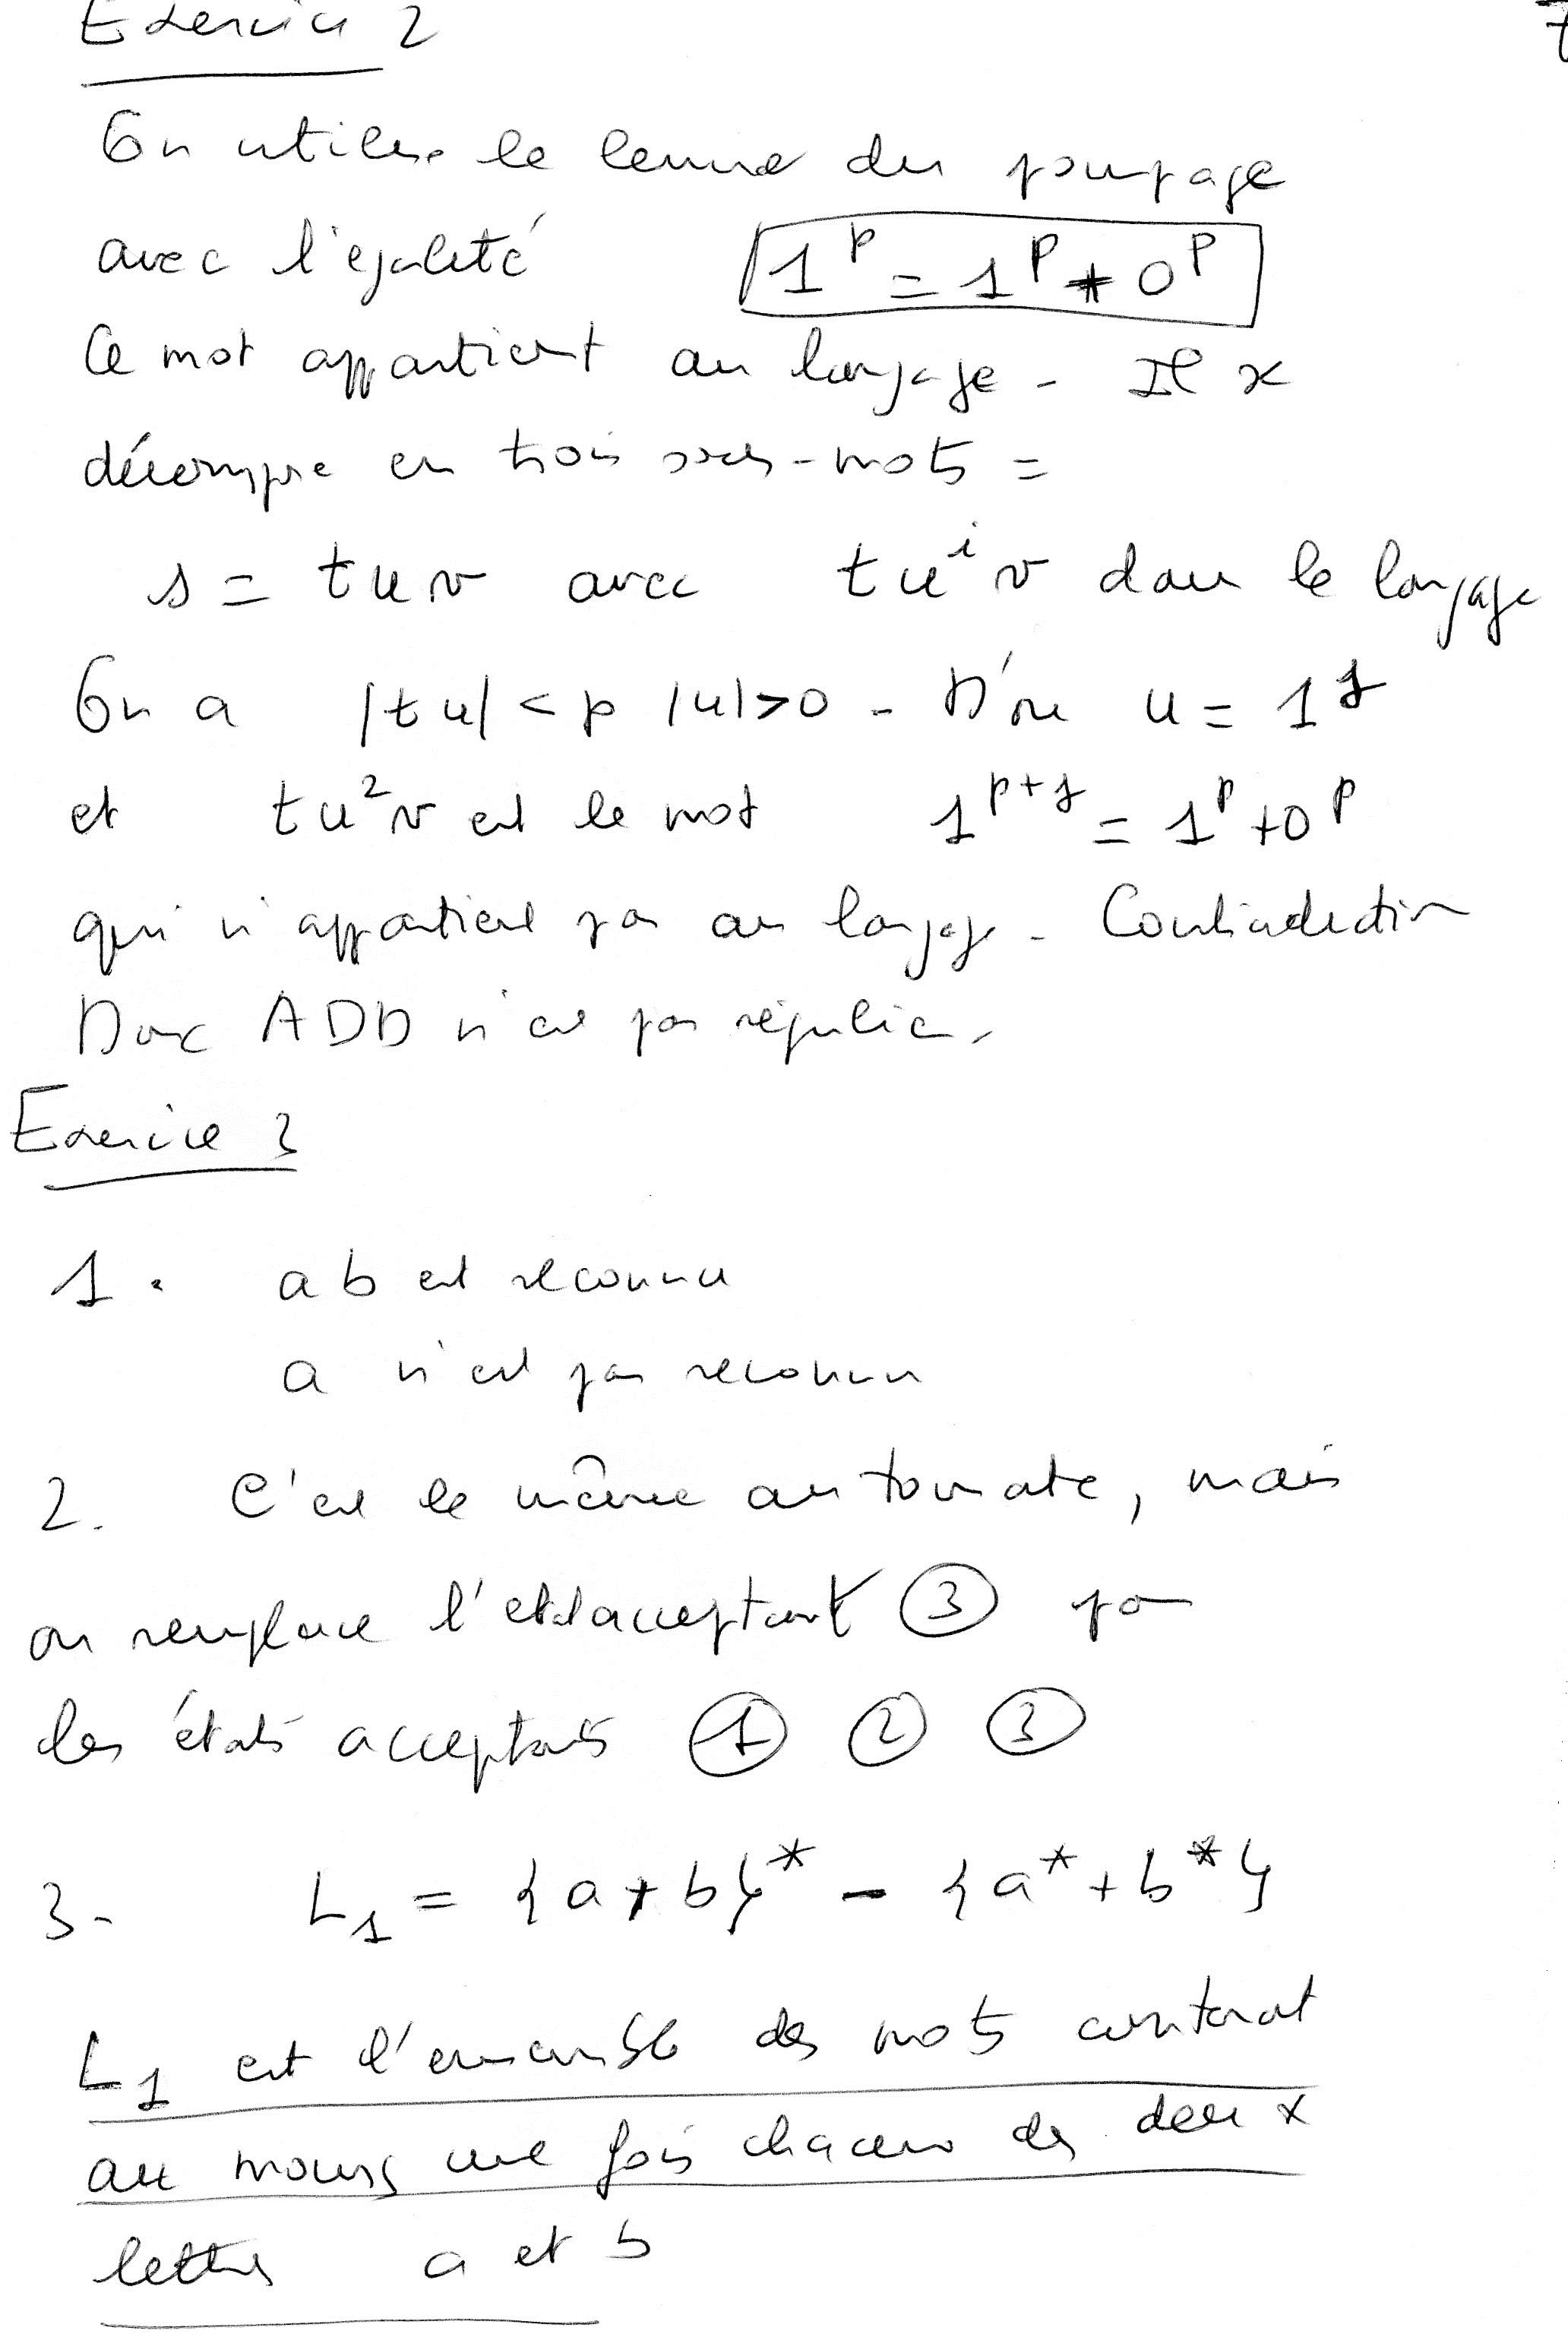 Exercice 2
7
On utilise le lemme du pompage
avec l'égalité 1^p = 1^p + 0^p
Ce mot appartient au langage - Il x
décompose en trois sous-mots =
s = t u v avec t u^i v dans le langage
On a |tu| < p |u|>0 - D'où u = 1^j
et t u^2 v est le mot 1^{p+j} = 1^p + 0^p
qui n'appartient pas au langage - Contradiction
Donc ADD n'est pas régulier.
Exercice 3
1. ab est reconnu
a n'est pas reconnu
2. C'est le même automate, mais
on remplace l'état acceptant ③ par
les états acceptants ① ② ③
3- L_1 = {a + b}^* - {a^* + b^*}
L_1 est l'ensemble des mots contenant
au moins une fois chacun des deux
lettres a et b